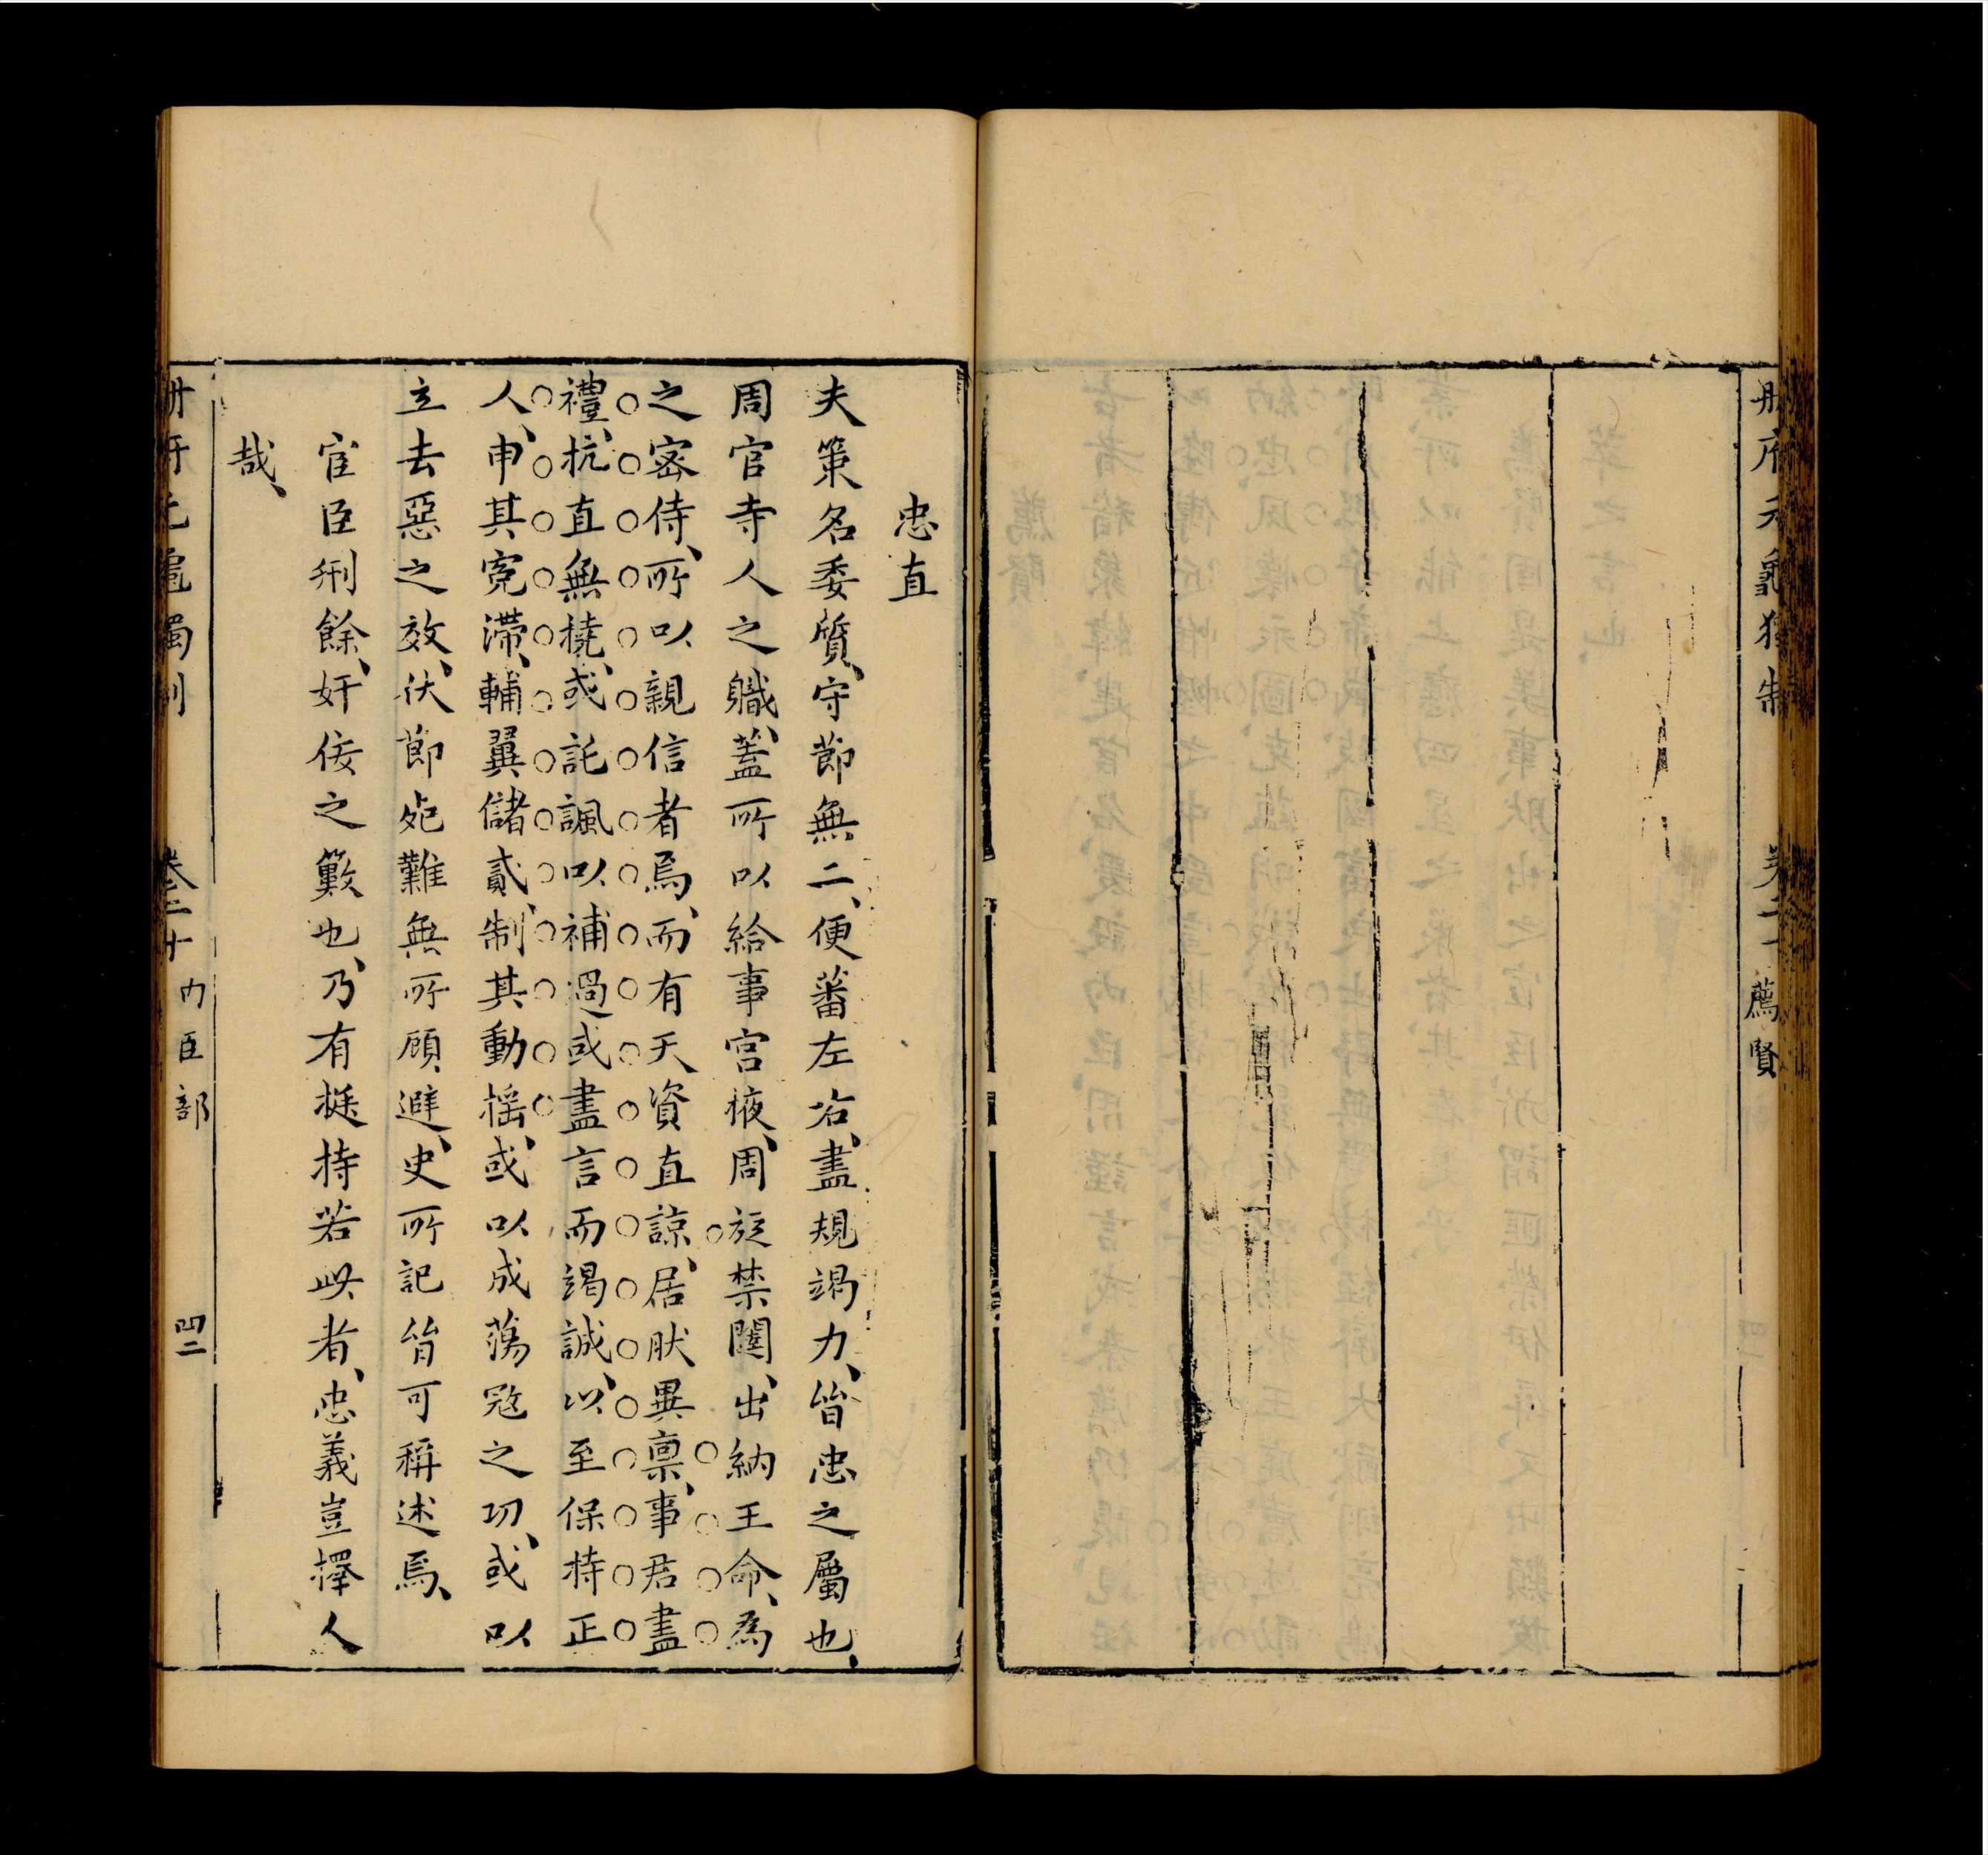 冊府元龜獨制
卷二十
薦賢
忠直
夫策名委質、守節無二、便蕃左右、盡規竭力、皆忠之屬也、
周官寺人之職、蓋所以給事宮掖、周旋禁闥、出納王命、為
之密侍、所以親信者焉、而有天資直諒、居肰異稟、事君盡
禮、抗直無撓、或託諷以補過、或盡言而竭誠、以至保持正
人、申其寃滯、輔翼儲貳、制其動搖、或以成蕩冦之功、或以
立去惡之效、伏節死難、無所顧避、史所記皆可稱述焉、
宦臣刑餘、奸佞之藪也、乃有挺持若此者、忠義豈擇人
哉、
冊府元龜獨制
卷二十
內臣部
四二